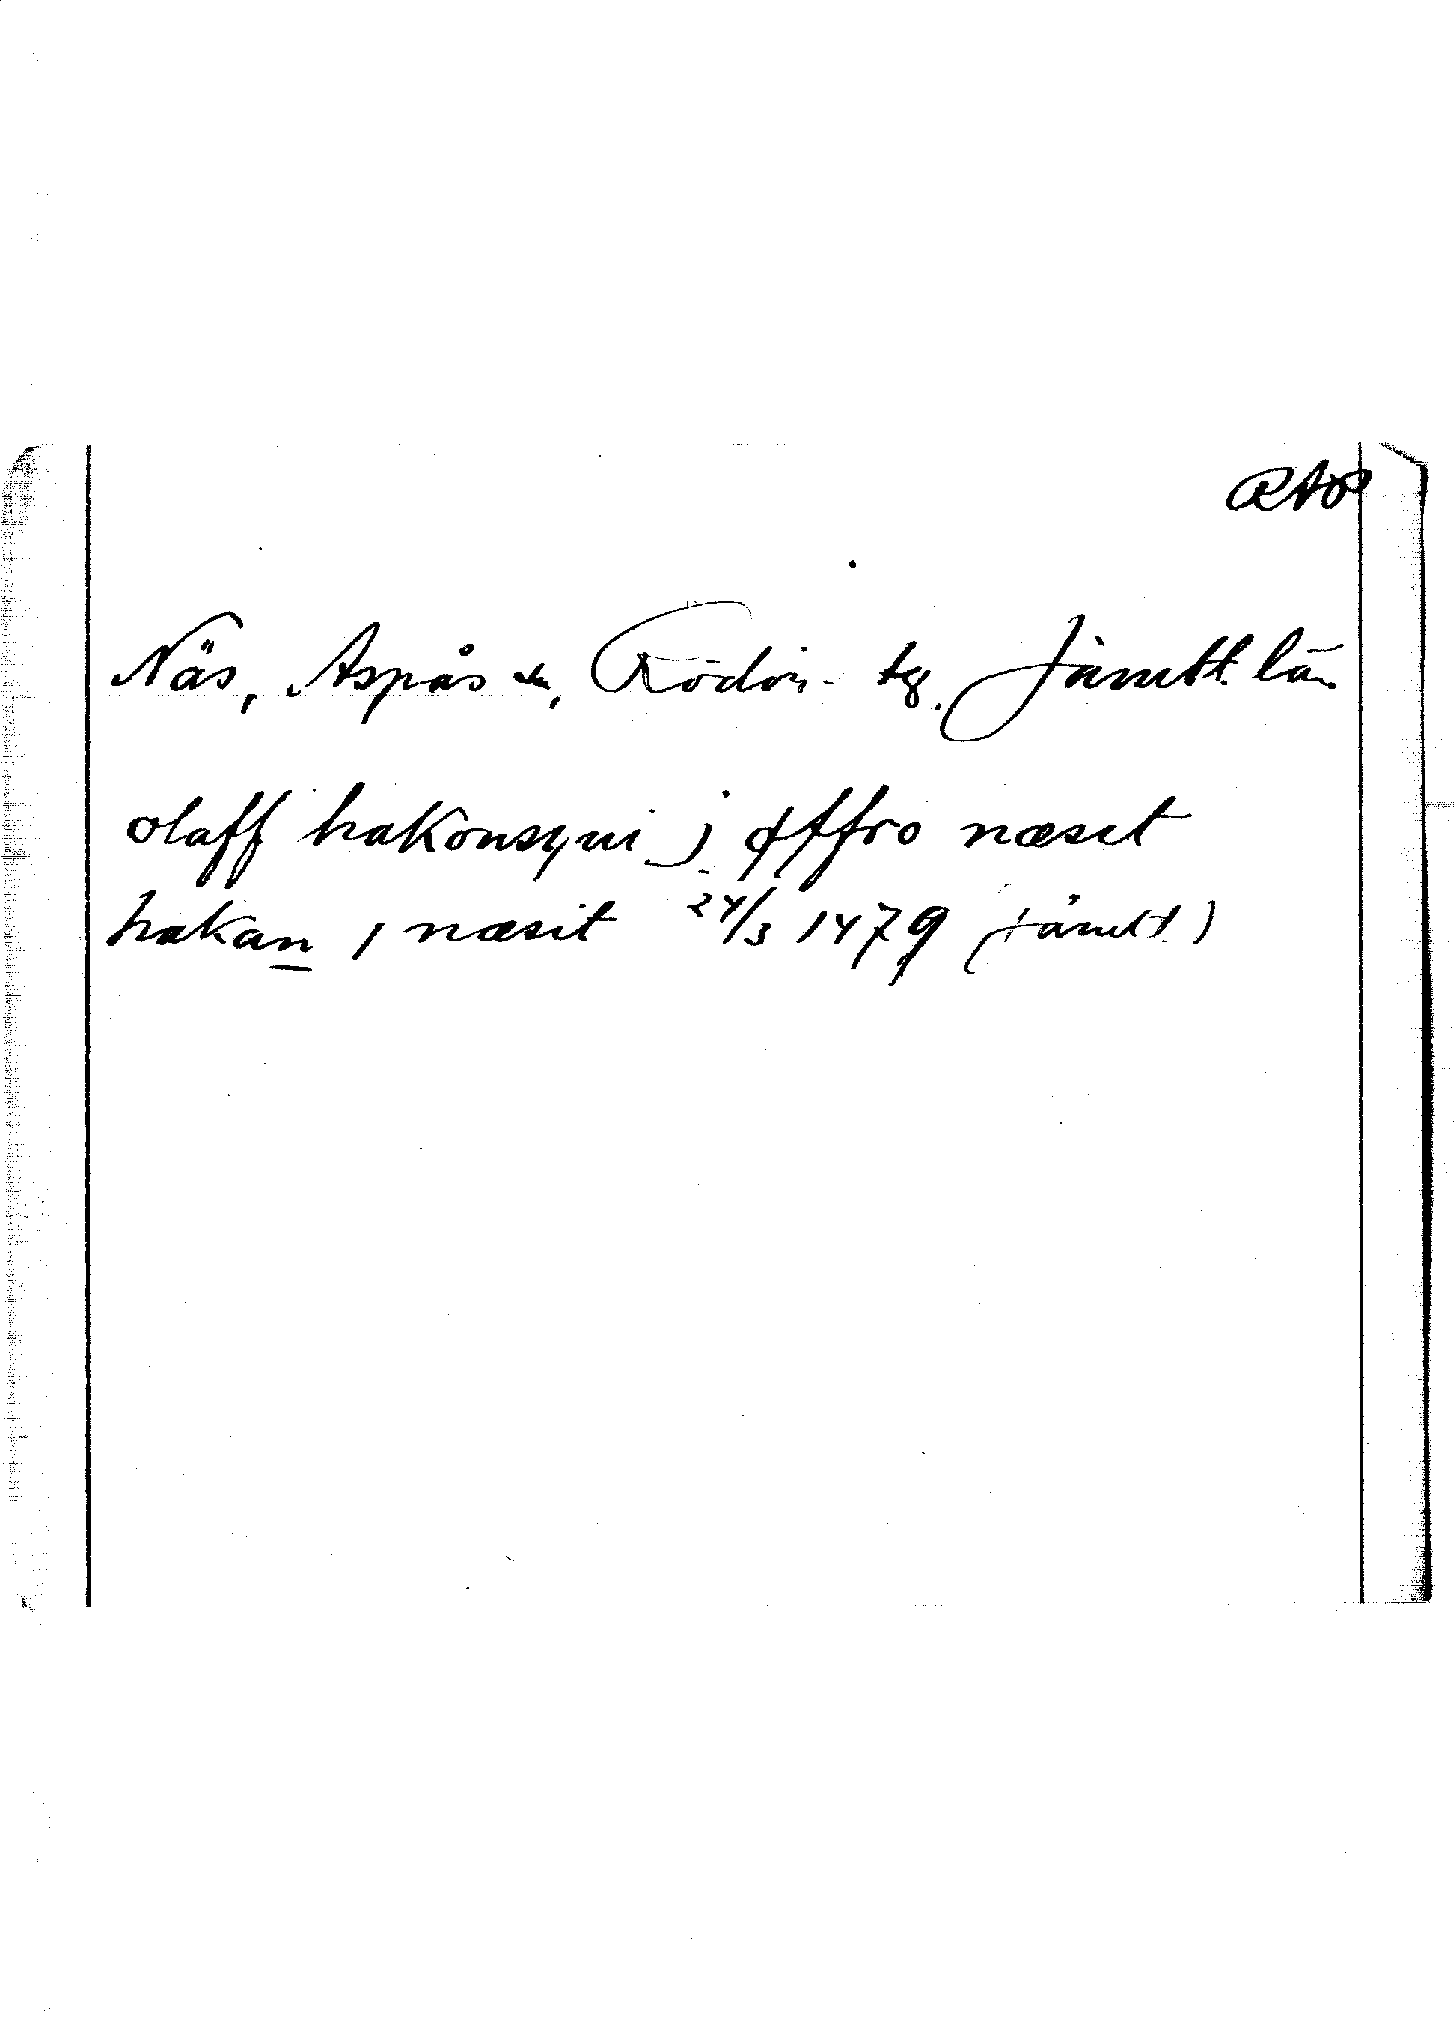 RAP
Näs, Aspås sn, Rödöns tg. Jämtl. län
olaff hakonsyni j øffro næset
hakan i næsit 24/3 1479 (Jämtl)